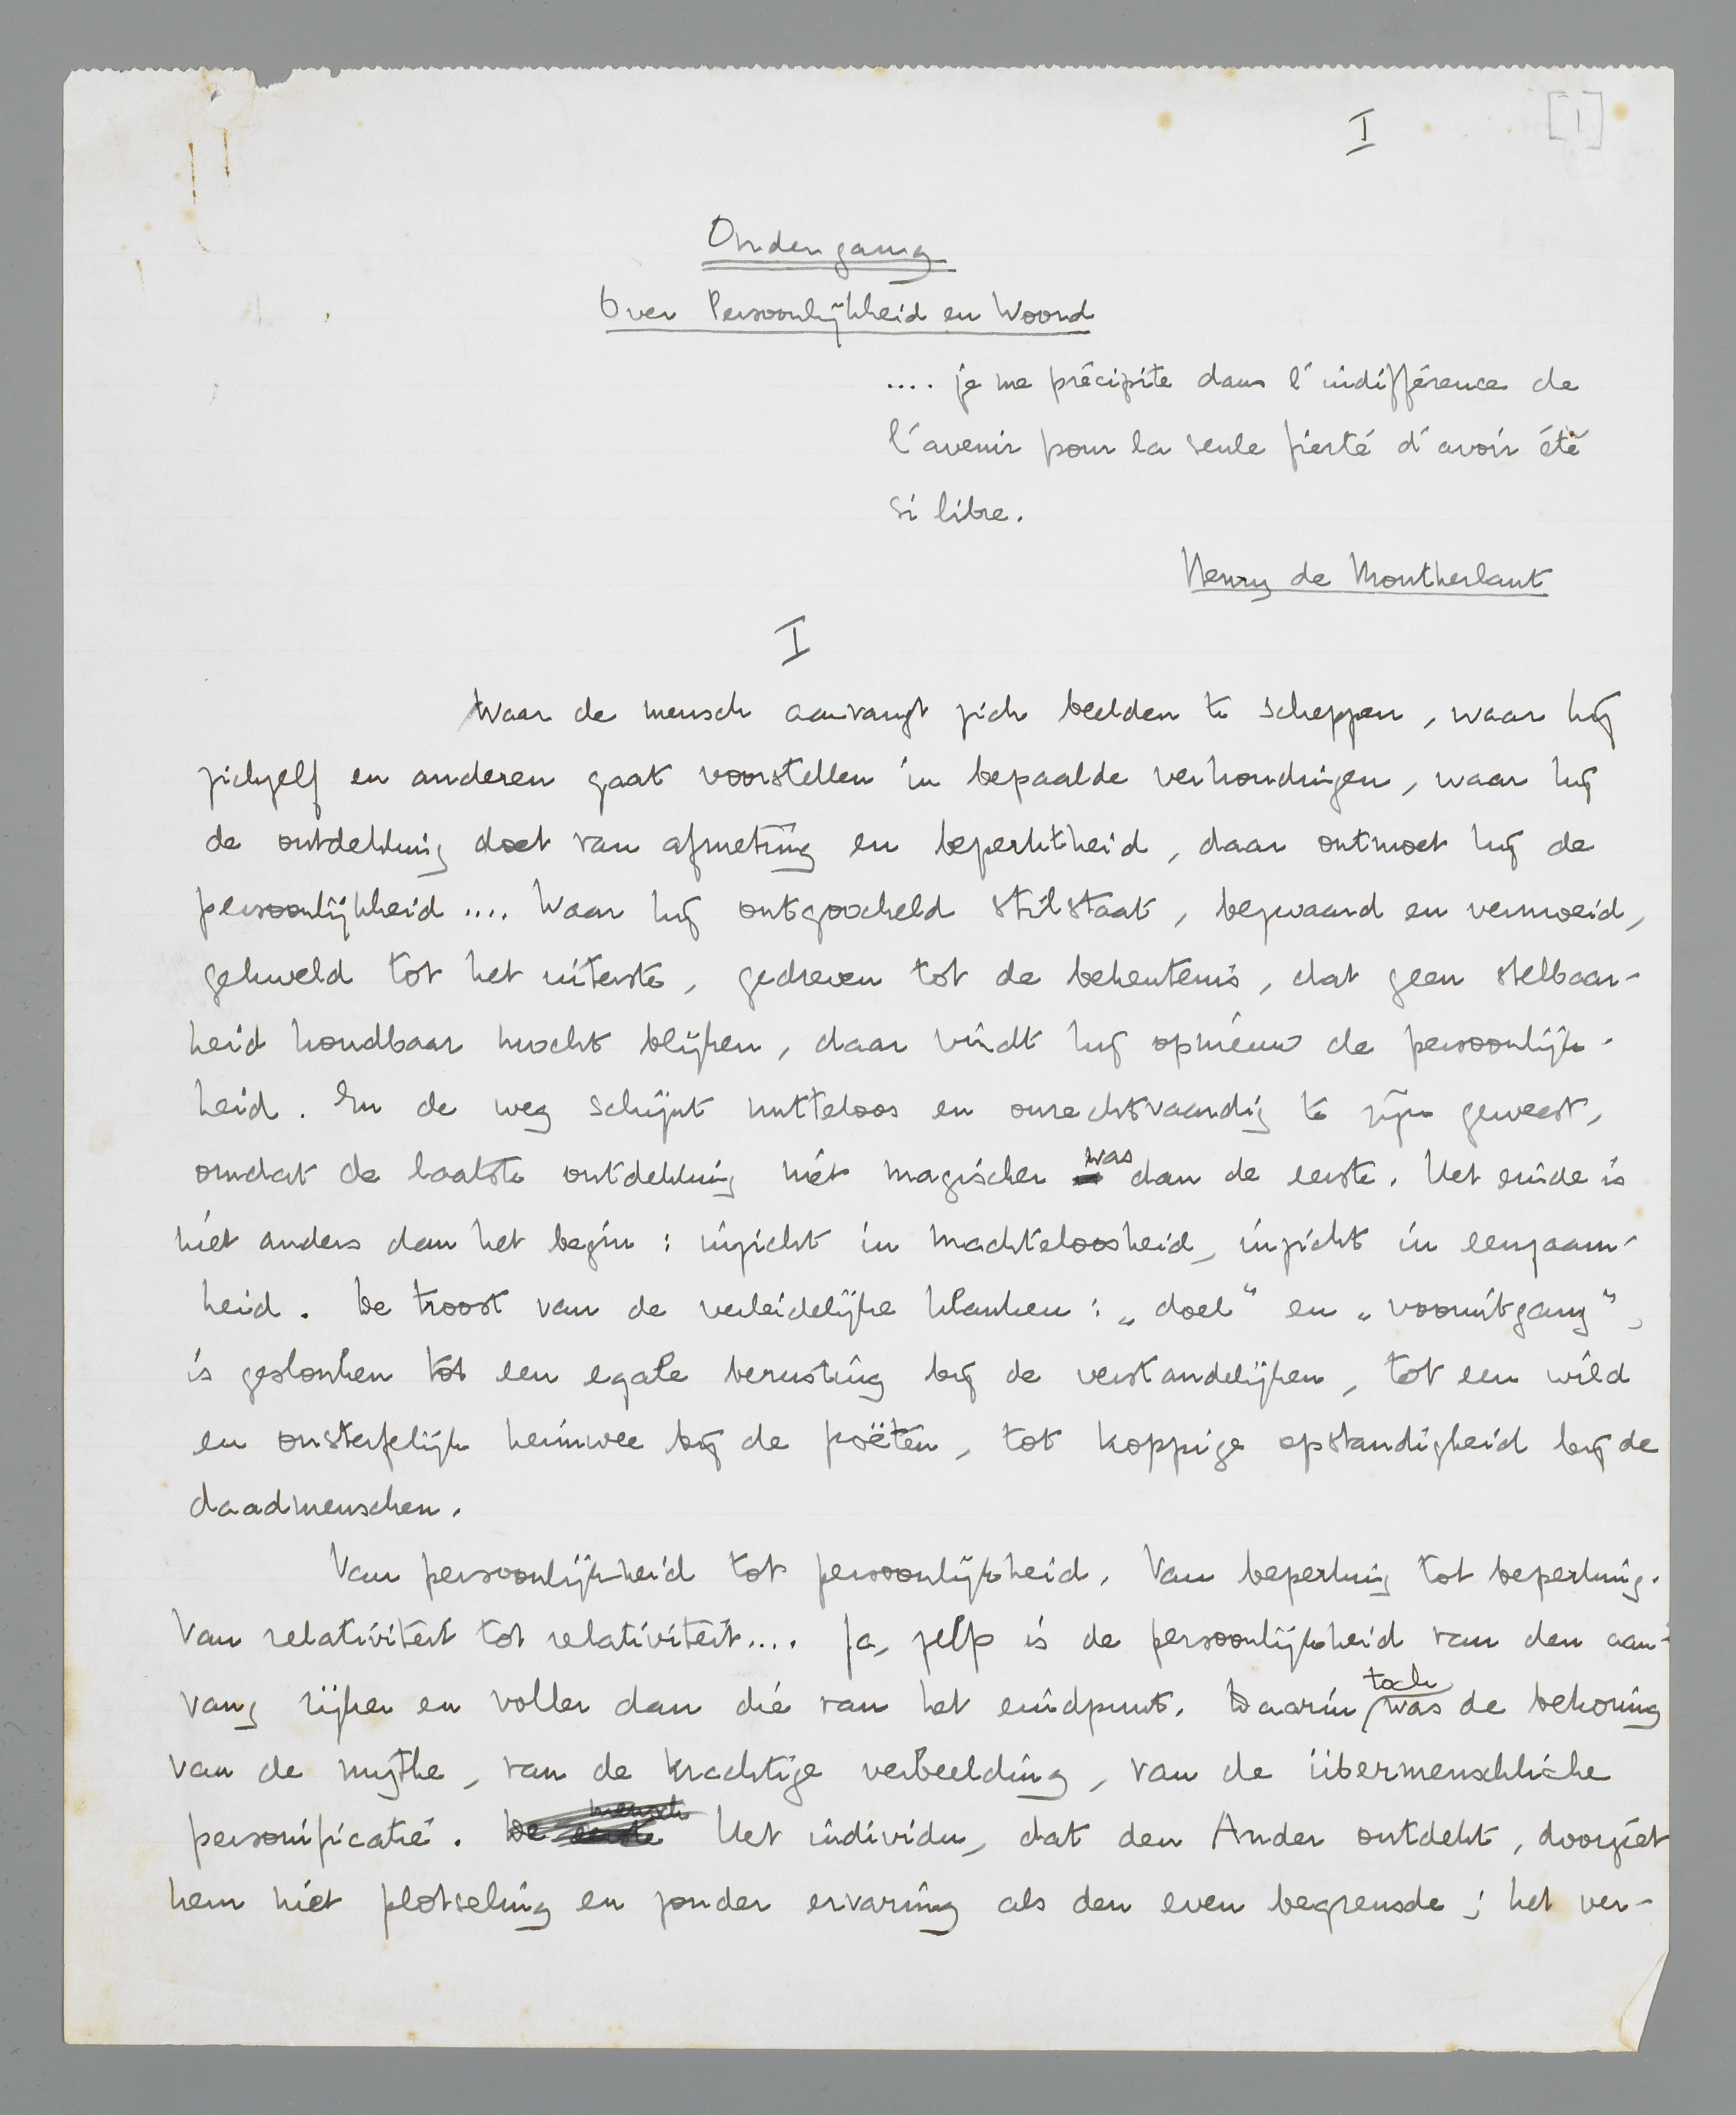 I
[1]
Ondergang
Over Persoonlijkheid en Woord
.... je me précipite dans l'indifférence de
l'avenir pour la seule fierté d'avoir été
si libre.
Henry de Montherlant
I
Waar de mensch aanvangt zich beelden te scheppen, waar hij
zichzelf en anderen gaat voorstellen in bepaalde verhoudingen, waar hij
de ontdekking doet van afmeting en beperktheid, daar ontmoet hij de
persoonlijkheid .... Waar hij ontgoocheld stilstaat, bezwaard en vermoeid,
gekweld tot het uiterste, gedreven tot de bekentenis, dat geen stelbaar-
heid houdbaar mocht blijken, daar vindt hij opnieuw de persoonlijk-
heid. En de weg schijnt nutteloos en onrechtvaardig te zijn geweest,
omdat de laatste ontdekking niet magischer was dan de eerste. Het einde is
niet anders dan het begin: inzicht in machteloosheid, inzicht in eenzaam-
heid. De troost van de verleidelijke klanken: „doel" en „vooruitgang",
is geslonken tot een egale berusting bij de verstandelijken, tot een wild
en onsterfelijk heimwee bij de poëten, tot koppige opstandigheid bij de
daadmenschen.
Van persoonlijkheid tot persoonlijkheid. Van beperking tot beperking.
Van relativiteit tot relativiteit.... Ja, zelfs is de persoonlijkheid van den aan-
vang rijker en voller dan die van het eindpunt. Daarin toch was de bekoring
van de mythe, van de krachtige verbeelding, van de übermenschliche
personificatie. De eerste mensch Het individu, dat den Ander ontdekt, doorziet
hem niet plotseling en zonder ervaring als den even begrensde; het ver-